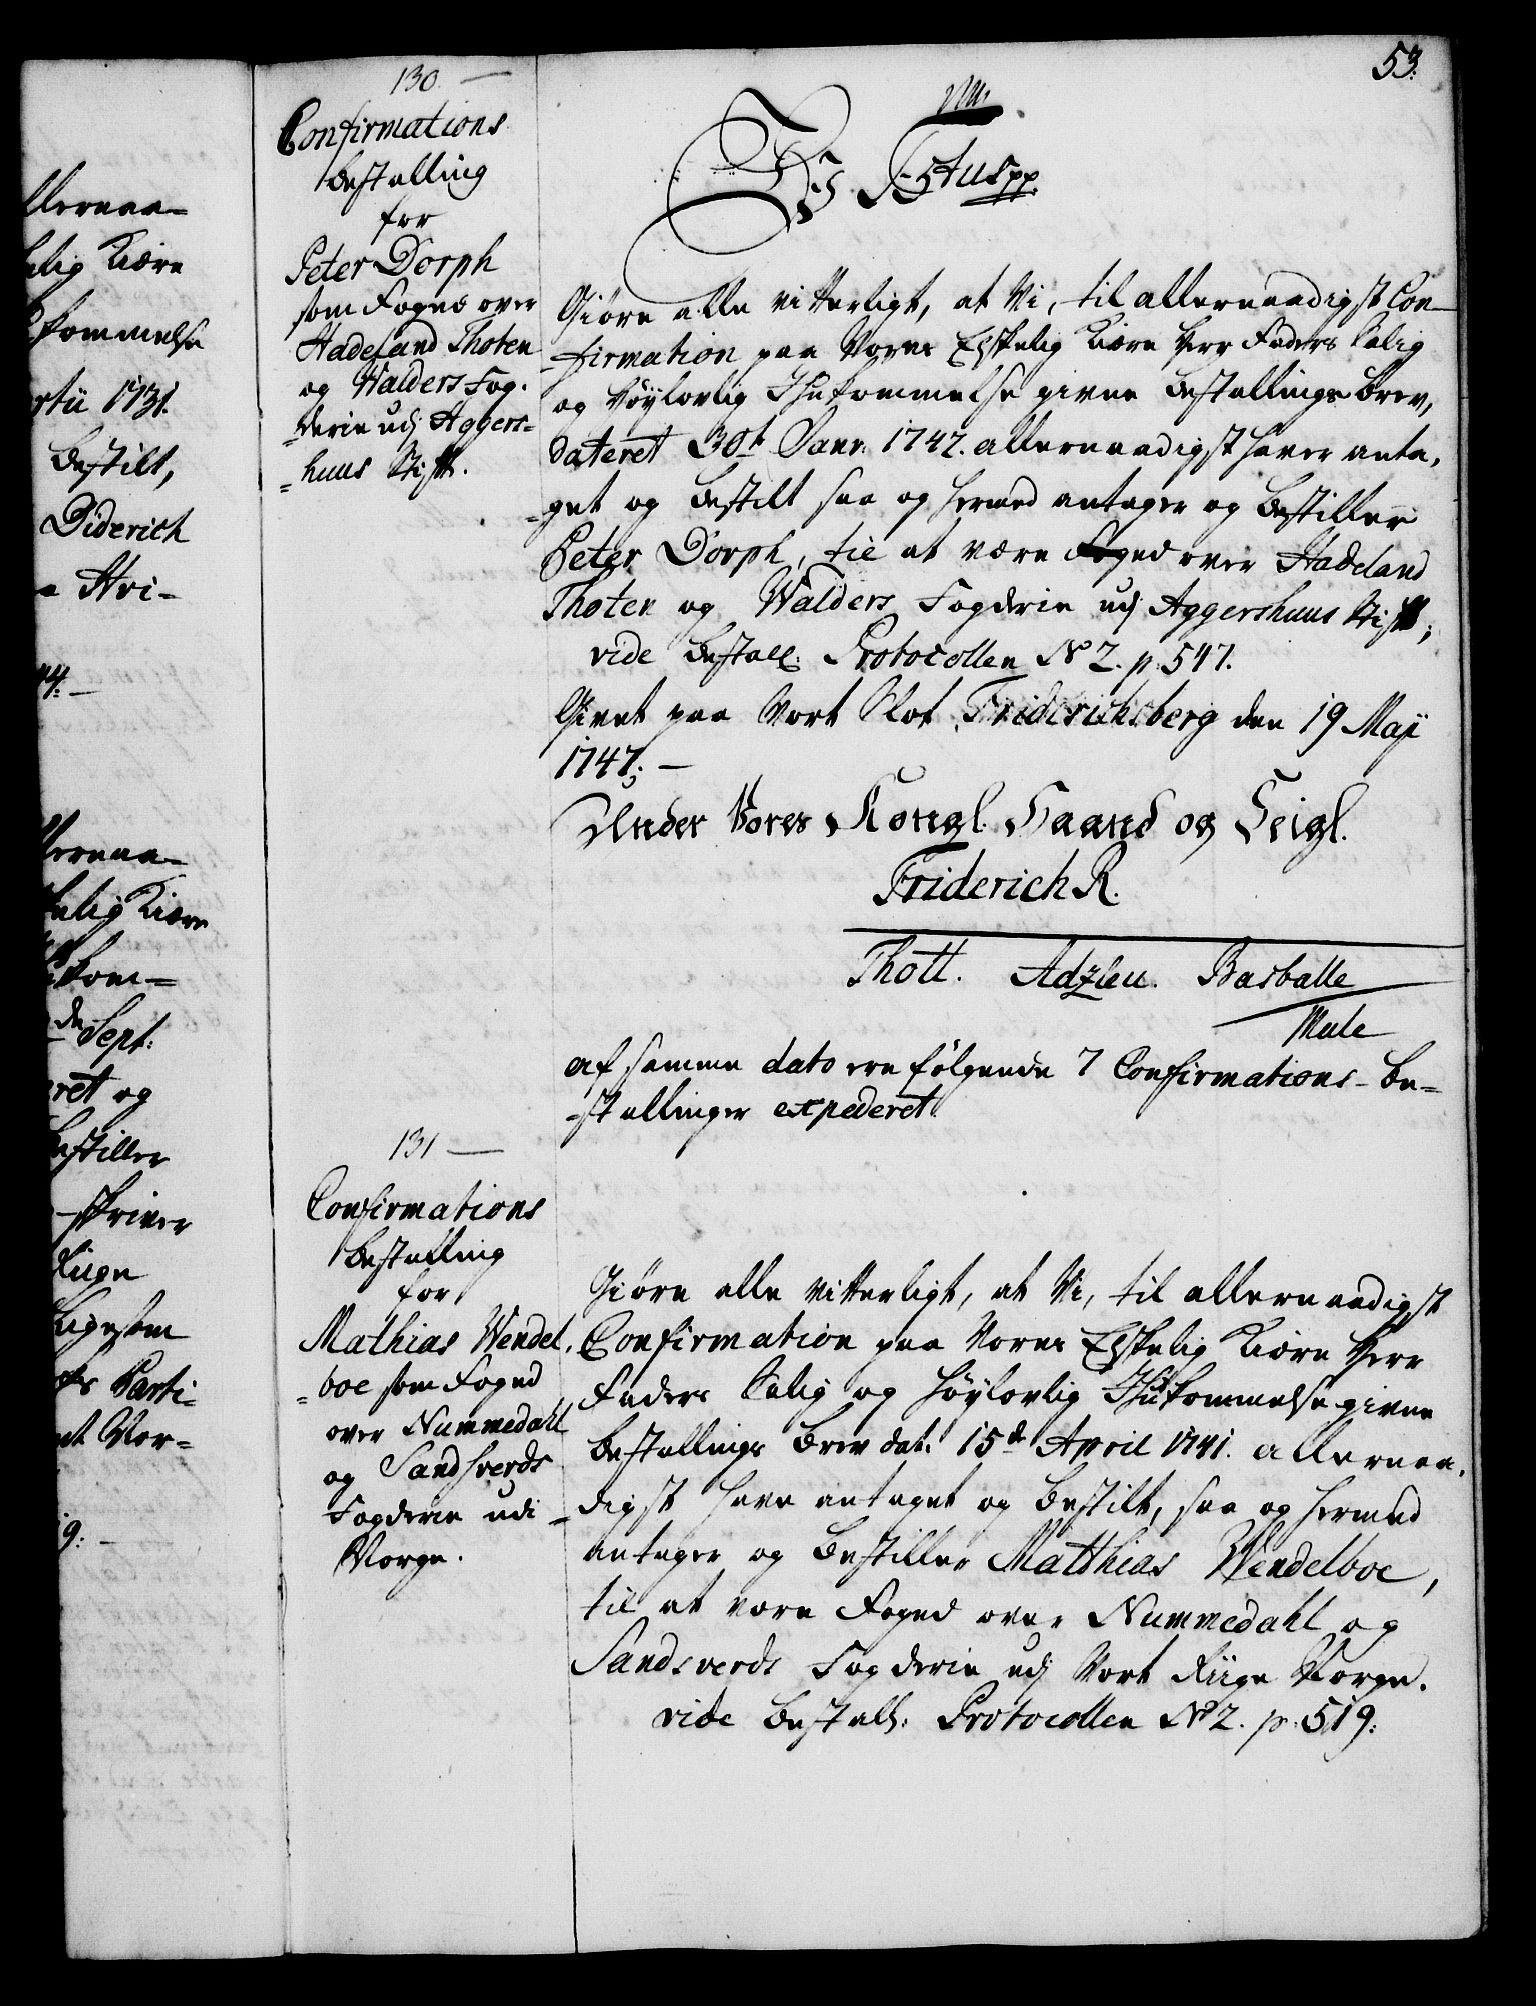 53.
130. —
Confirmations
Bestalling
for
Peter Dorph
som Foged over
Hadeland Thoten
og Walders Fog-
derie udj Aggers=
=huus Stift.
Vi Ftus pp.
Giøre alle vitterligt, at Vi, til allernaadigst Con-
firmation paa Vores Elskelig Kiære Herr Faders Salig
og Høylovlig Ihukommelse givne Bestallings Brev,
dateret 30t. Janr. 1742. allernaadigst haver anta-
=get og bestilt saa og hermed antager og bestiller
Peter Dorph, til at være Foged over Hadeland
Thoten og Walders Fogderie udj Aggershuus Stift;
vide Bestall: Protocollen No 2. p. 547.
Givet paa Vort Slot Friderichsberg den 19 Maji
1747. —
Under Vores Kongl. Haand og Seigl.
Friderich R.
Thott. Adzleu. Basballe
Mule
af samme dato ere følgende 7 Confirmations-Be=
=stallinger expederet.
131 —
Confirmations
Bestalling
for
Mathias Wendel-
=boe som Foged
over Nummedahl
og Sandsverds
Fogderie udi
Norge.
Giøre alle vitterligt, at Vi, til allernaadigst
Confirmation paa Vores Elskelig Kiære Herr
Faders Salig og Høylovlig Ihukommelse givne
Bestallings Brev dat: 15de April 1741. allernaa-
digst have antaget og bestilt, saa og hermed
antager og bestiller Matthias Wendelboe,
til at være Foged over Nummedahl og
Sandsverds Fogderie udj Vort Riige Norge.
vide Bestall: Protocollen No 2. p. 519.
llernaa=
elig Kiære
kommelse
rtii 1731.
bestilt,
Diderich
Hvi-
44. —
llernaa=
kelig Kiære
kom=
de Sept:
ret og
bestiller
skriver
Riige
Ligesom
Parti-
et Nor=
19: —